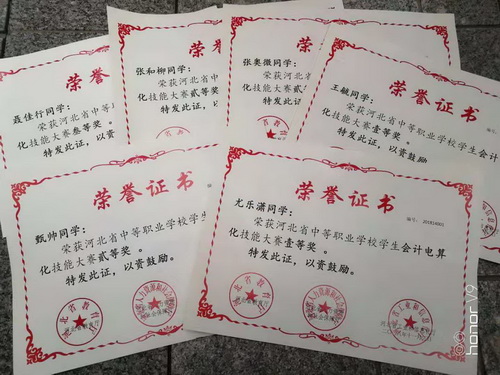 荣誉
聂佳行同学：
荣获河北省中等
化技能大赛叁等奖。
特发此证，以资
荣
张和柳同学：
荣获河北省
化技能大赛贰等
特发此证，以
张奥微同学：
荣获河北省
化技能大赛贰
特发此证，
荣誉证书
王毓同学：
荣获河北省中等职业学校学生
化技能大赛壹等奖。
特发此证，以资鼓励。
荣誉证书
甄帅同学：
荣获河北省中等职业学校学生
化技能大赛贰等奖。
特发此证，以资鼓励。
荣誉证书
编号：
尤乐潇同学：
荣获河北省中等职业学校学生会计电算
化技能大赛壹等奖。
特发此证，以资鼓励。
honor V9